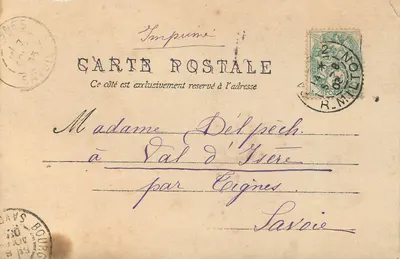 Imprimé
CARTE POSTALE
Ce côté est exclusivement reservé à l'adresse
Madame Delpèch
à Val d'Isère
par Tignes
Savoie
R. MILTON
BOURG
SAVOIE